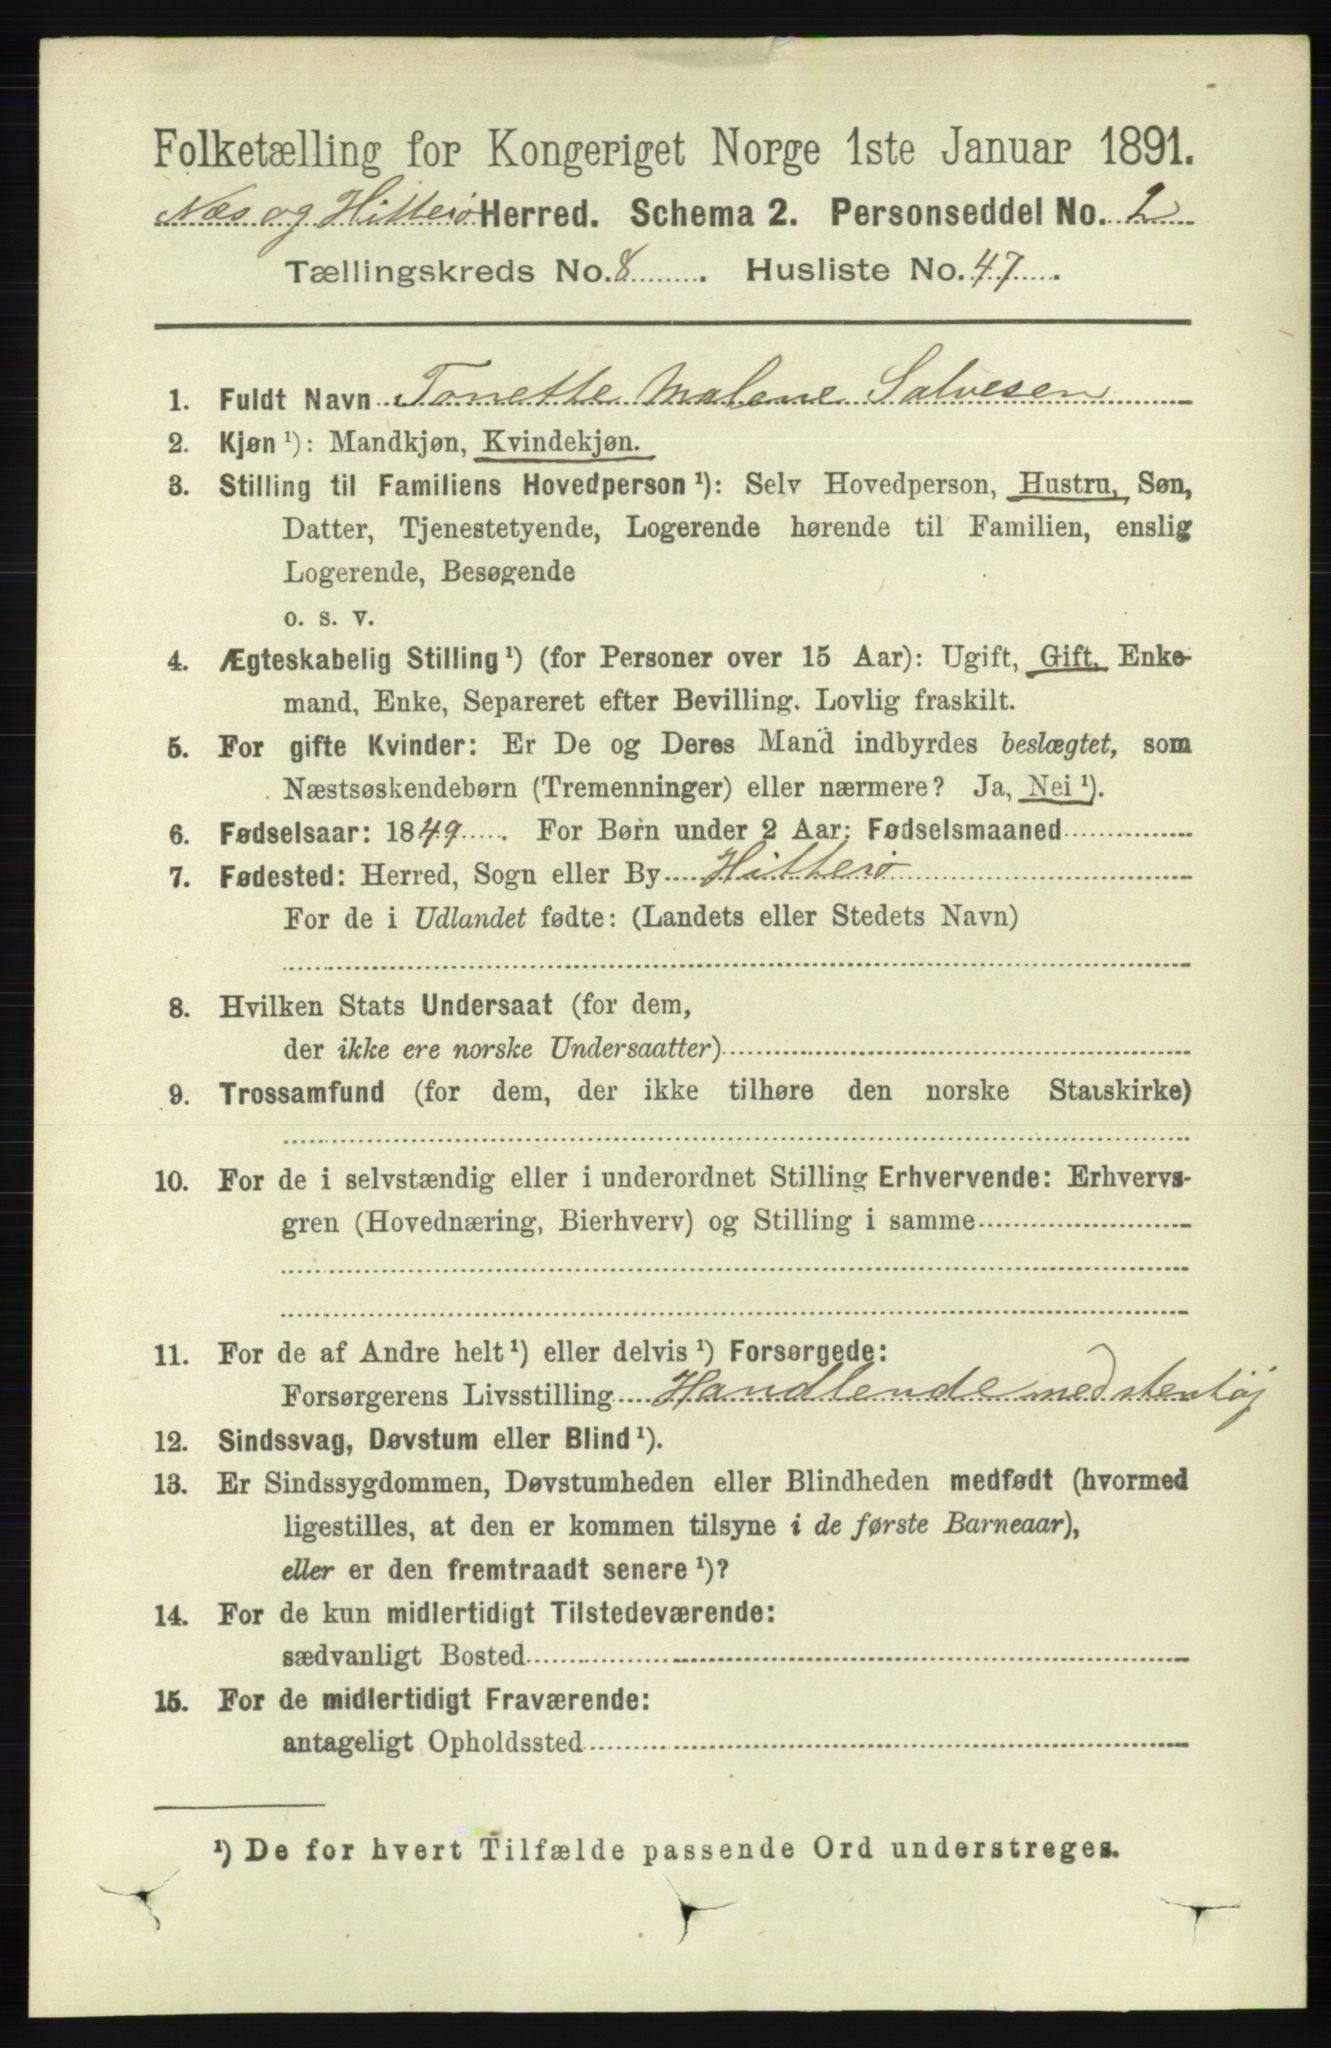 Folketælling for Kongeriget Norge 1ste Januar 1891.
Næs og Hitterø Herred. Schema 2. Personseddel No. 2
Tællingskreds No. 8. Husliste No. 47.
1. Fuldt Navn Tonette Malene Salvesen
2. Kjøn ¹): Mandkjøn, Kvindekjøn.
3. Stilling til Familiens Hovedperson ¹): Selv Hovedperson, Hustru, Søn,
Datter, Tjenestetyende, Logerende hørende til Familien, enslig
Logerende, Besøgende
o. s. v.
4. Ægteskabelig Stilling ¹) (for Personer over 15 Aar): Ugift, Gift, Enke-
mand, Enke, Separeret efter Bevilling. Lovlig fraskilt.
5. For gifte Kvinder: Er De og Deres Mand indbyrdes beslægtet, som
Næstsøskendebørn (Tremenninger) eller nærmere? Ja, Nei ¹).
6. Fødselsaar: 1849. For Børn under 2 Aar: Fødselsmaaned
7. Fødested: Herred, Sogn eller By Hitterø
For de i Udlandet fødte: (Landets eller Stedets Navn)
8. Hvilken Stats Undersaat (for dem,
der ikke ere norske Undersaatter)
9. Trossamfund (for dem, der ikke tilhøre den norske Statskirke)
10. For de i selvstændig eller i underordnet Stilling Erhvervende: Erhvervs-
gren (Hovednæring, Bierhverv) og Stilling i samme
11. For de af Andre helt ¹) eller delvis ¹) Forsørgede:
Forsørgerens Livsstilling Handlende med stentøj
12. Sindssvag, Døvstum eller Blind ¹).
13. Er Sindssygdommen, Døvstumheden eller Blindheden medfødt (hvormed
ligestilles, at den er kommen tilsyne i de første Barneaar),
eller er den fremtraadt senere ¹)?
14. For de kun midlertidigt Tilstedeværende:
sædvanligt Bosted
15. For de midlertidigt Fraværende:
antageligt Opholdssted
¹) De for hvert Tilfælde passende Ord understreges.